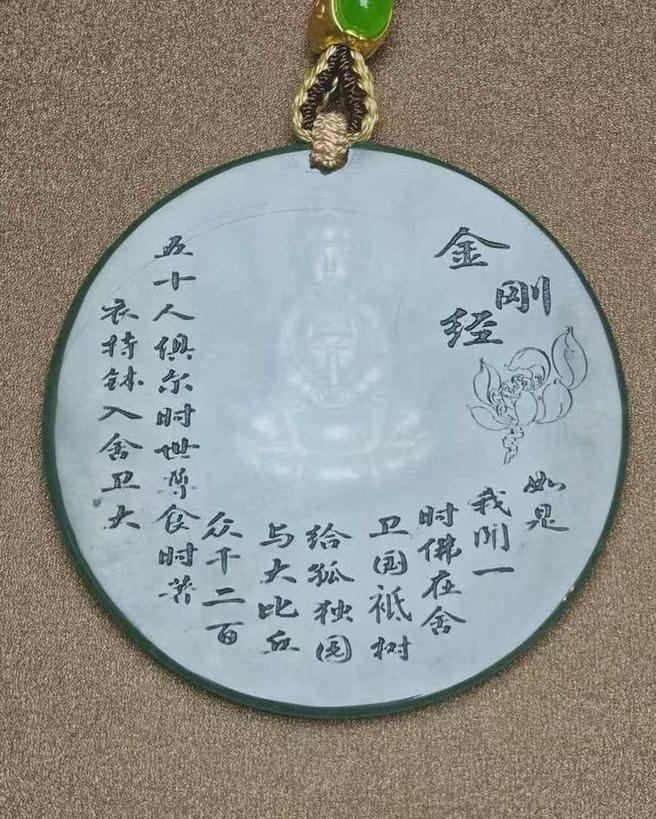 金刚
经
如是
我闻一
时佛在舍
卫国祗树
给孤独园
与大比丘
众千二百
五十人俱尔时世尊食时著
衣持钵入舍卫大